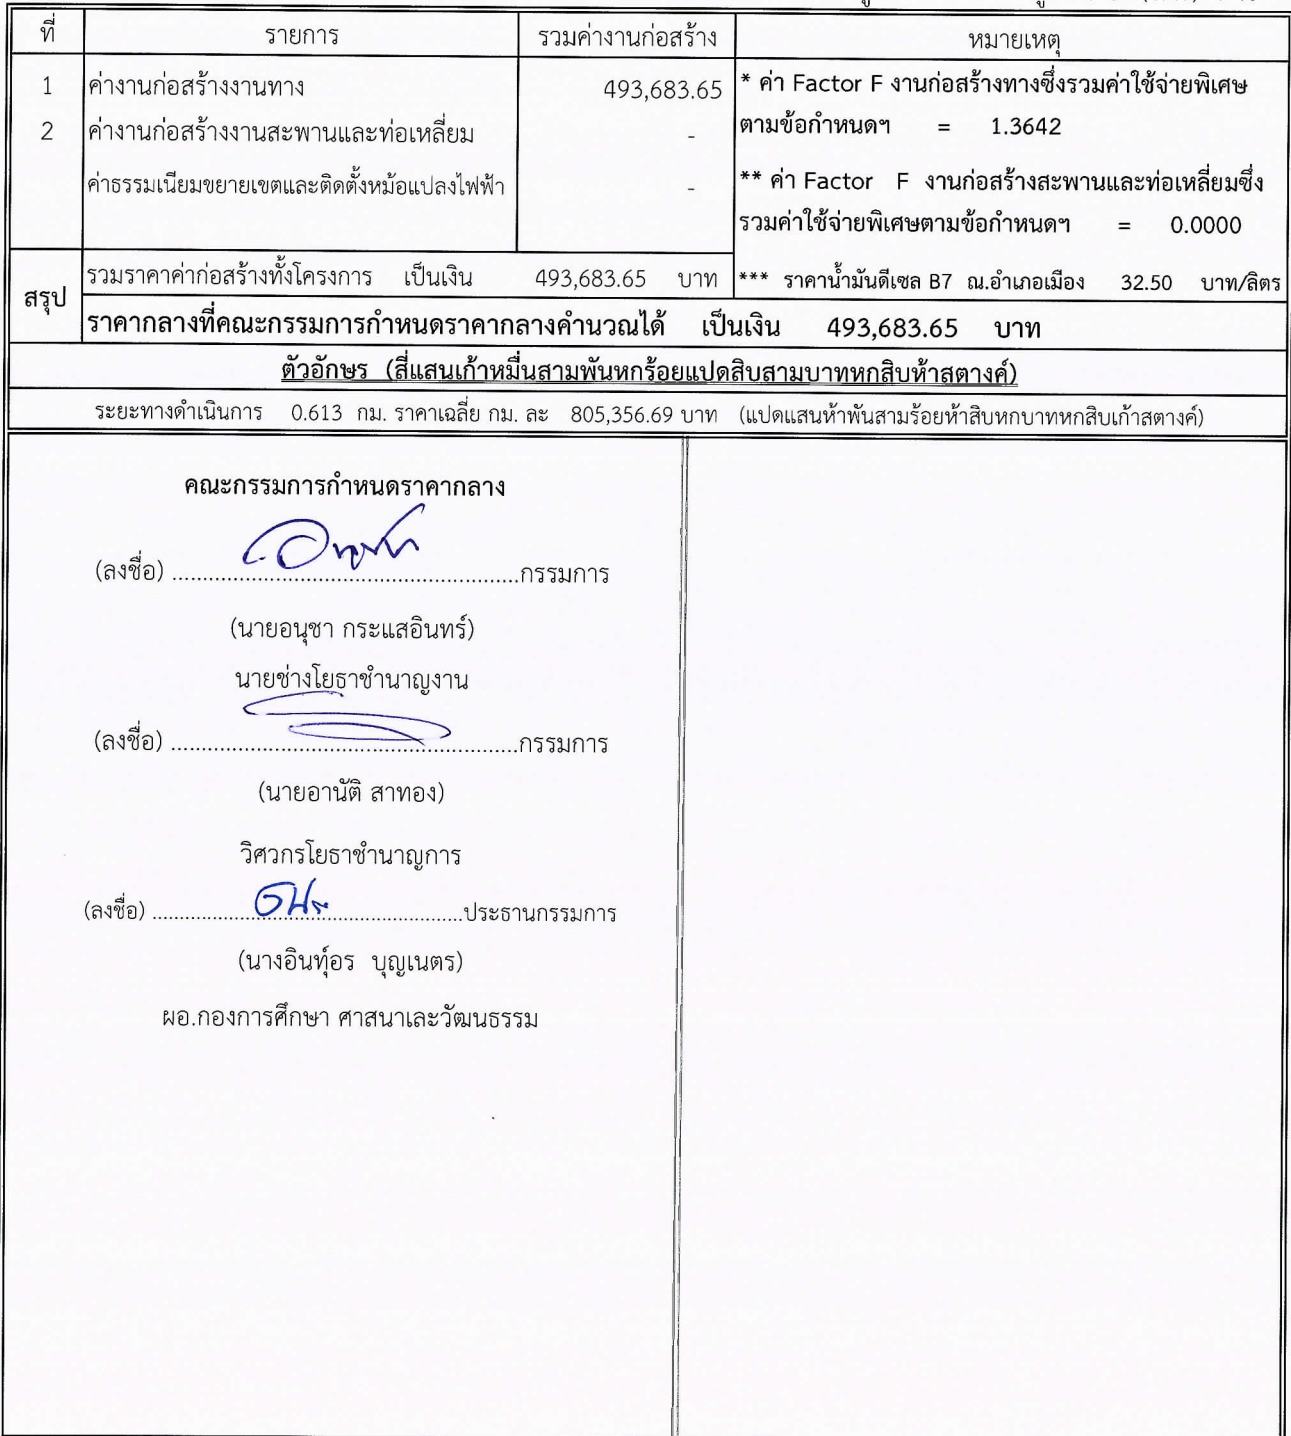 ที่ รายการ รวมค่างานก่อสร้าง หมายเหตุ
1 ค่างานก่อสร้างงานทาง 493,683.65 * ค่า Factor F งานก่อสร้างทางซึ่งรวมค่าใช้จ่ายพิเศษ
2 ค่างานก่อสร้างงานสะพานและท่อเหลี่ยม - ตามข้อกำหนดฯ = 1.3642
ค่าธรรมเนียมขยายเขตและติดตั้งหม้อแปลงไฟฟ้า - ** ค่า Factor F งานก่อสร้างสะพานและท่อเหลี่ยมซึ่ง
รวมค่าใช้จ่ายพิเศษตามข้อกำหนดฯ = 0.0000
สรุป รวมราคาค่าก่อสร้างทั้งโครงการ เป็นเงิน 493,683.65 บาท *** ราคาน้ำมันดีเซล B7 ณ.อำเภอเมือง 32.50 บาท/ลิตร
ราคากลางที่คณะกรรมการกำหนดราคากลางคำนวณได้ เป็นเงิน 493,683.65 บาท
ตัวอักษร (สี่แสนเก้าหมื่นสามพันหกร้อยแปดสิบสามบาทหกสิบห้าสตางค์)
ระยะทางดำเนินการ 0.613 กม. ราคาเฉลี่ย กม. ละ 805,356.69 บาท (แปดแสนห้าพันสามร้อยห้าสิบหกบาทหกสิบเก้าสตางค์)
คณะกรรมการกำหนดราคากลาง
(ลงชื่อ) ..........................................................กรรมการ
(นายอนุชา กระแสอินทร์)
นายช่างโยธาชำนาญงาน
(ลงชื่อ) ..........................................................กรรมการ
(นายอานัติ สาทอง)
วิศวกรโยธาชำนาญการ
(ลงชื่อ) ....................................................ประธานกรรมการ
(นางอินทุ์อร บุญเนตร)
ผอ.กองการศึกษา ศาสนาเละวัฒนธรรม